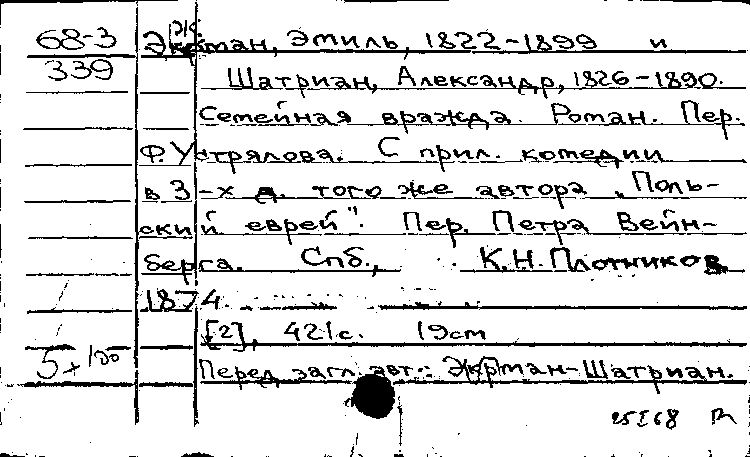 68-3 Эркман, Эмиль, 1822-1899 и
339 Шатриан, Александр, 1826-1890.
Семейная вражда. Роман. Пер.
Ф. Устрялова. С прил. комедии
в 3-х д. того же автора „Поль-
ский еврей". Пер. Петра Вейн-
берга. Спб., К.Н. Плотников,
1874.
[2], 421с. 19см
Перед загл. авт.: Эркман-Шатриан.
25 I 68